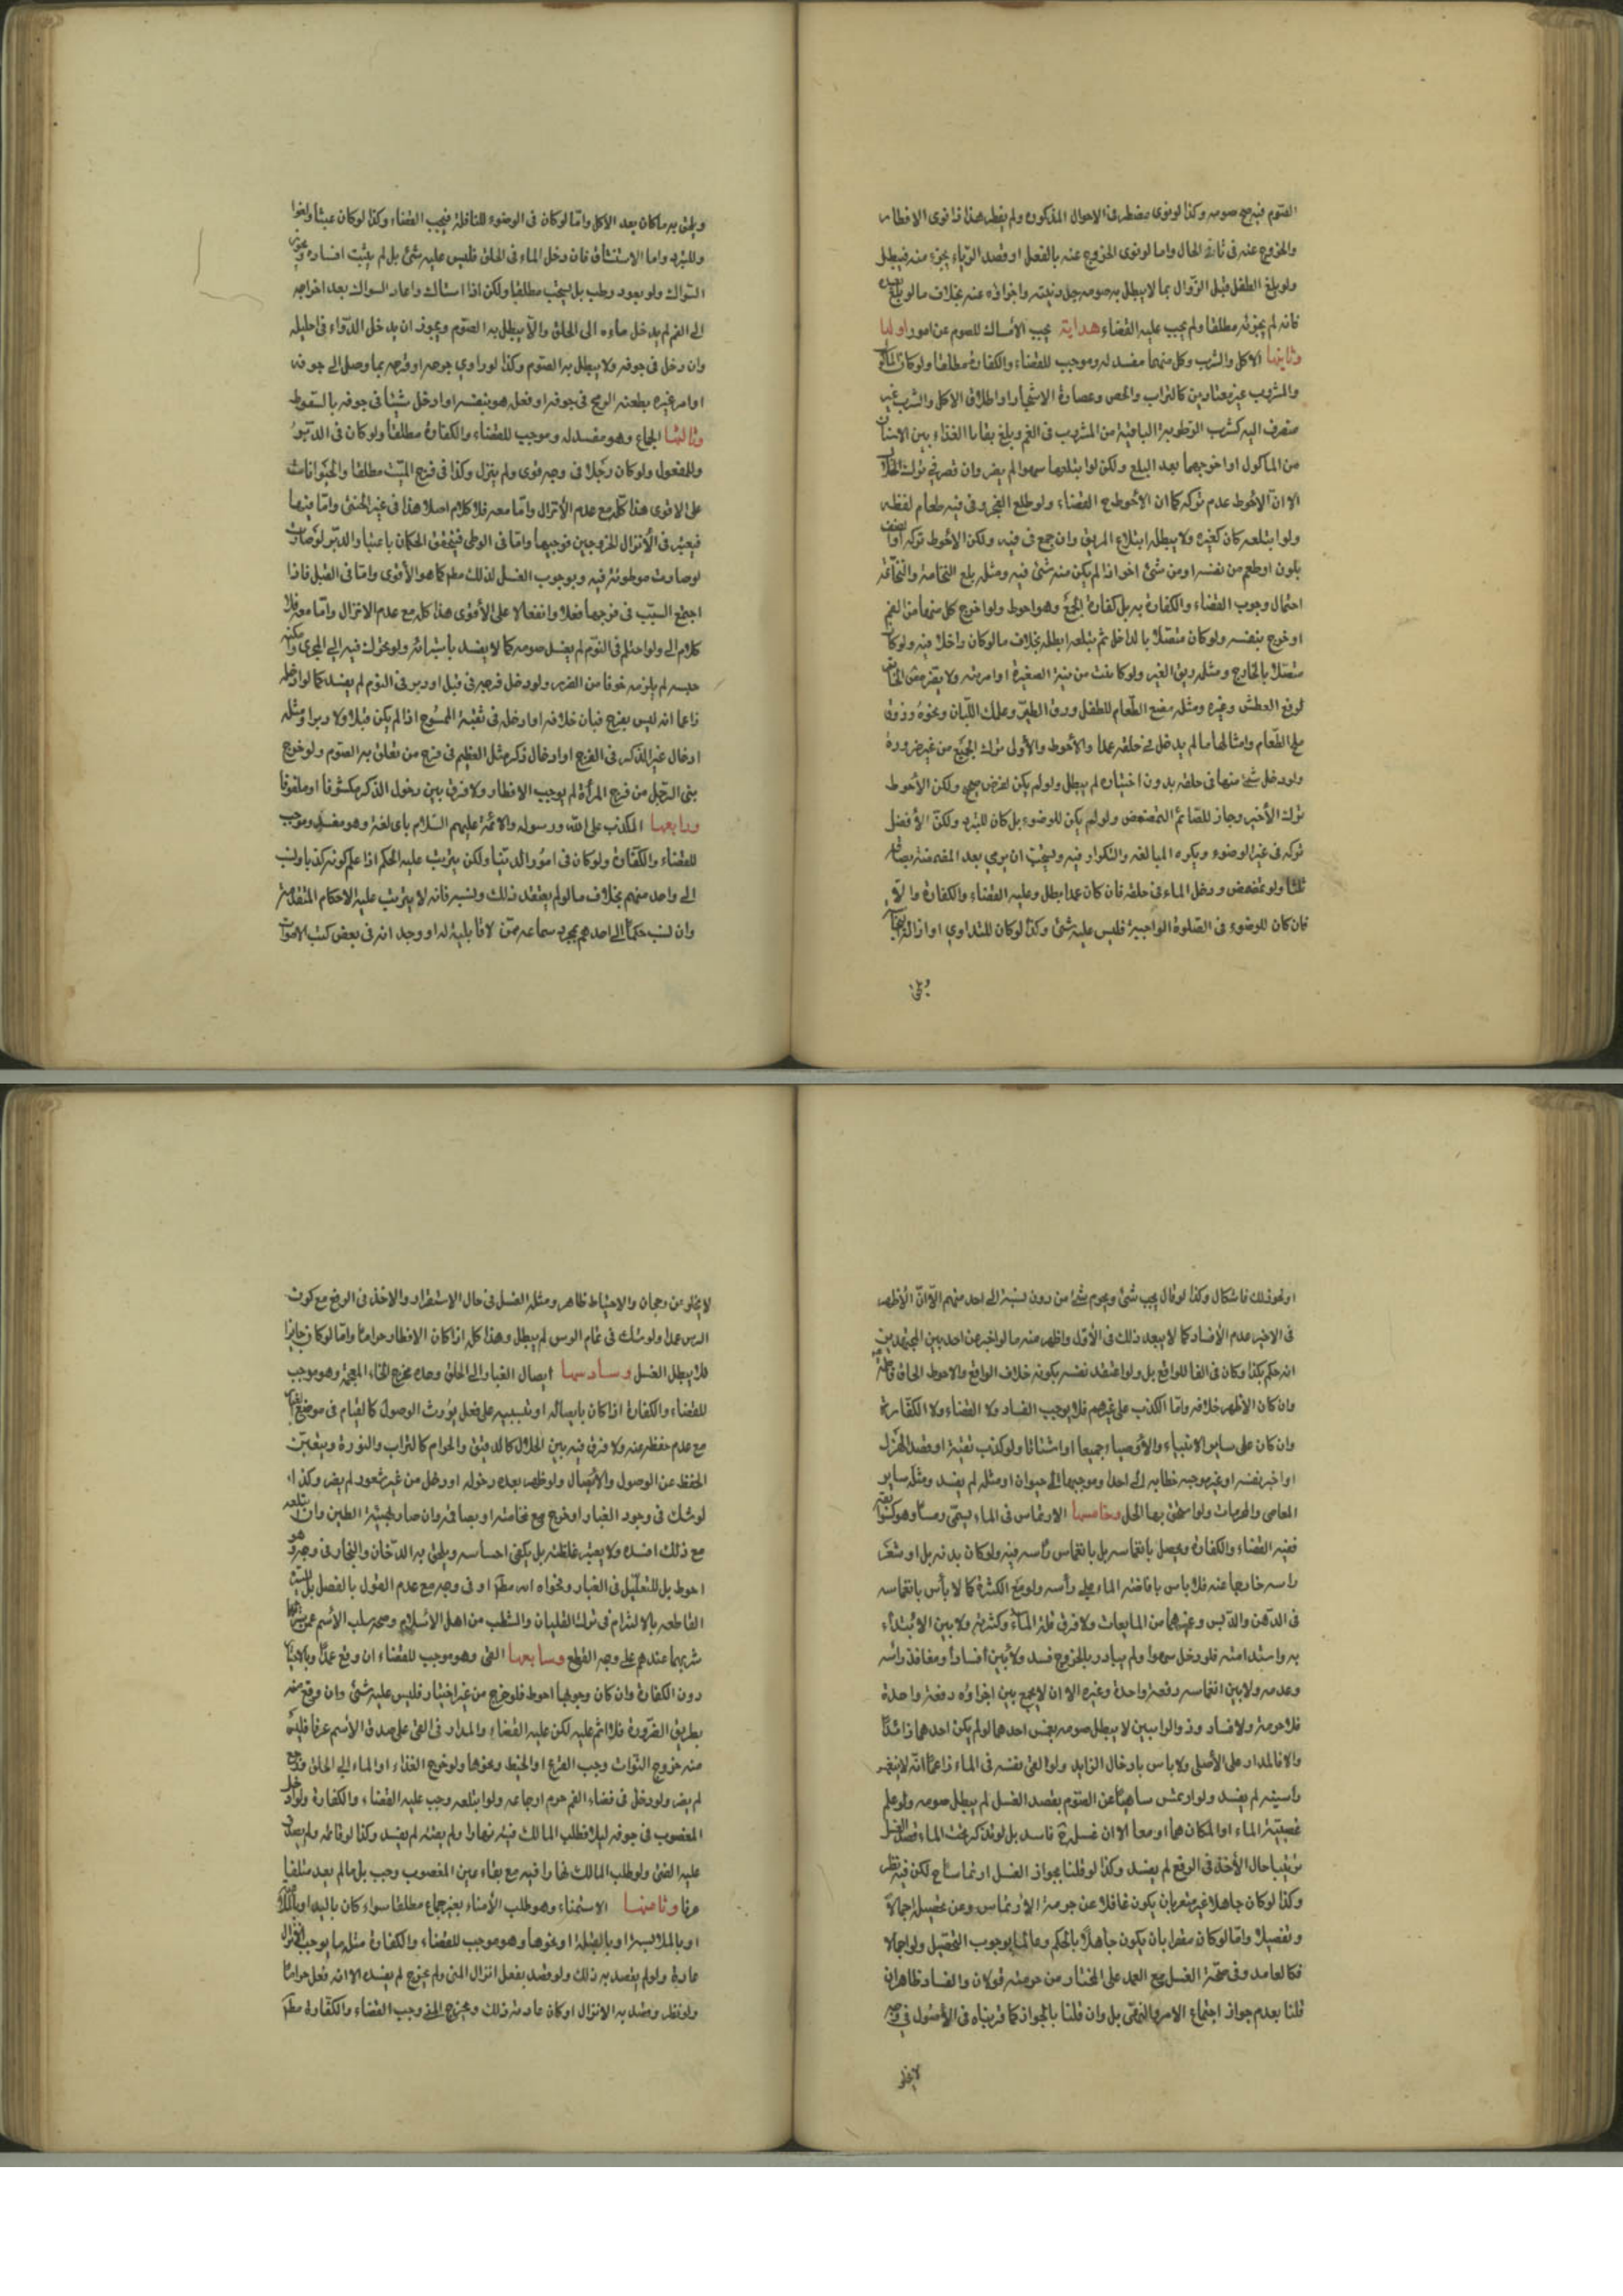 الصوم فيه صح صومه وكذا لو نوى مضطر فى الاحوال المذكورة ولم يفطر هذا اذا نوى الافطار
والخروج عنه فى ثانى الحال واما لو نوى الخروج عنه بالفعل او قصد الرياء بجزء منه فيبطل
ولو بلغ الطفل قبل الزوال بما لا يبطل به صومه جدد نيته واجزاءه عنه بخلاف ما لو بلغ بعده
فانه لم يجزئه مطلقا ولم يجب عليه القضاء هداية يجب الامساك للصوم عن امور اولها
وثانيها الاكل والشرب وكل منهما مفسد له وموجب للقضاء والكفارة مطلقا ولو كان الماكول
والمشروب غير معتادين كالتراب والحصى وعصارة الاشجار او اطلاق الاكل والشرب غير
منصرف اليه كشرب الرطوبة الباقية من المشروب فى الفم وبلغ بقايا الغذاء بين الاسنان
من الماكول او اخرجهما بعد البلع ولكن لو ابتلعها سهوا لم يضر وان قصر فى ترك الخلال
الا ان الاحوط عدم تركه كما ان الاحوط ح القضاء ولو طلع الفجر وفى فيه طعام لفظه
ولو ابتلعه كان كغيره ولا يبطله ابتلاع الريق وان جمع فى فيه ولكن الاحوط تركه
بلون او طعم من نفسه او من شئ اخر اذا لم يكن منه شئ فيه ومثله بلع النخامة والنخاعة
احتمال وجوب القضاء والكفارة به بل كفارة الجمع وهو احوط ولو اخرج كل منهما من الفم
او خرج بنفسه ولو كان متصلا بالداخل ثم يبتلعه ابطله بخلاف ما لو كان داخلا فيه ولو كان
متصلا بالخارج ومثله ريق الغير ولو كانت من بنته الصغيرة او امرئته ولا يضر مص الخاتم
لرفع العطش وغيره ومثله مضغ الطعام للطفل وزق الطير وعلك اللبان ونحوه وذوق
ملح الطعام وامثالها ما لم يدخل فى حلقه عمدا والاحوط والاولى ترك الجميع من غير ضرورة
ولو دخل شئ منها فى حلقه بدون اختياره لم يبطل ولو لم يكن لغرض صحيح ولكن الاحوط
ترك الاخير وجاز للصائم التمضمض ولو لم يكن للوضوء بل كان للتبرد ولكن الافضل
تركه فى غير الوضوء ويكره المبالغة والتكرار فيه ويستحب ان يرمى بعد المضمضة بصاقه
ثلثا ولو تمضمض ودخل الماء فى حلقه فان كان عمدا بطل وعليه القضاء والكفارة والا
فان كان للوضوء فى الصلوة الواجبة فليس عليه شئ وكذا لو كان للتداوى او ازالة النجاسة
ويلحق
ويلحق به ما كان بعد الاكل واما لو كان فى الوضوء للنافلة فيجب القضاء وكذا لو كان عبثا ولغوا
وللتبرد واما الاستنشاق فان دخل الماء فى الحلق فليس عليه شئ بل لم يثبت افساده ويجوز
السواك ولو بعود رطب بل يستحب مطلقا ولكن اذا استاك واعاد السواك بعد اخراجه
الى الفم لم يدخل ماءه الى الحلق والا يبطل به الصوم ويجوز ان يدخل الدواء فى احليله
وان دخل فى جوفه ولا يبطل به الصوم وكذا لو داوى جرحه او قرحه بما وصل الى جوفه
او امر غيره بطعنه الرمح فى جوفه او فعل هو بنفسه او ادخل شيئا فى جوفه بالسعوط
وثالثها الجماع وهو مفسد له وموجب للقضاء والكفارة مطلقا ولو كان فى الدبر
وللمفعول ولو كان رجلا فى وجه قوى ولم ينزل وكذا فى فرج الميت مطلقا والحيوانات
على الاقوى هذا كله مع عدم الانزال واما معه فلا كلام اصلا هذا فى غير الخنثى واما فيها
فيعتبر فى الانزال الخروج من فرجيها واما فى الوطى فيتحقق الحكمان باعتبار الدبر
لو صارت موطوئة فيه وبوجوب الغسل لذلك مطم كما هو الاقوى واما فى القبل فاذا
اجتمع السبب فى فرجها فعلا وانفعالا على الاقوى هذا كله مع عدم الانزال واما معه فلا
كلام الى ولو احتلم فى النوم لم يفسد صومه كما لا يفسد باستبرائه ولو تحرك فيه الى المجرى وامكنه
حبسه لم يلزمه خوفا من الضرر ولو دخل فرجه فى قبل او دبر فى النوم لم يفسد كما لو ادخله
زاعما انه ليس بفرج فبان خلافه او ادخله فى ثقبة الممسوح اذا لم يكن قبلا ولا دبرا ومثله
ادخال غير الذكر فى الفرج او ادخال ذكر مثل العظيم فى فرج من تعلق به الصوم ولو خرج
منى الرجل من فرج المرأة لم يوجب الافطار ولا فرق بين دخول الذكر مكشوفا او ملفوفا
ورابعها الكذب على الله ورسوله والائمة عليهم السلام باى لغة وهو مفسد وموجب
للقضاء والكفارة ولو كان فى امور الدنيا ولكن يترتب عليه الحكم اذا علم كونه كذبا ونسب
الى واحد منهم بخلاف ما لو لم يعتقد ذلك ونسبه فانه لا يترتب عليه الاحكام المتقدمة
وان نسب حكما الى احدهم بمجرد سماعه ممن لا قابلية له او وجد انه فى بعض كتب الاموات
او نحو ذلك فاشكال وكذا لو قال يجب شئ ويحرم شئ من دون نسبة الى احد منهم الا ان الاظهر
فى الاخير عدم الافساد كما لا يبعد ذلك فى الاول واظهر منه ما لو اخبر عن احد بين المجتهدين
انه حكم بكذا وكان مخالفا للواقع بل ولو اعتقد نفسه بكونه خلاف الواقع والاحوط الحاق
وان كان الاظهر خلافه واما الكذب على غيرهم فلا يوجب الفساد ولا القضاء ولا الكفارة
وان كان على ساير الانبياء والاوصياء جميعا او اشتاتا ولو كذب تقية او قصد الهزل
او اخبر بنفسه او غير موجه خطابه الى احد او موجها الى حيوان او مثله لم يفسد ومثله ساير
المعاصى والمحرمات ولو استحق بها الحد وخامسها الارتماس فى الماء ليسمى رمسا وهو كسوابقه
ففيه القضاء والكفارة ويحصل بانغماسه بل بانغماس رأسه فيه ولو كان بدنه بل او شعر
راسه خارجا عنه فلا باس بافاضة الماء على رأسه ولو مع الكثرة كما لا بأس بانغماسه
فى الدهن والدبس وغيرهما من المايعات ولا فرق فى قلة الماء وكثرته ولا بين الابتداء
به واستدامته فلو دخل سهوا ولم يبادر بالخروج فسد ولا بين انسداد منافذ راسه
وعدمه ولا بين انغماسه دفعة واحدة وغيره الا ان لا يجمع بين اجزاءه دفعة واحدة
فلا حرمة ولا فساد وذو الراسين لا يبطل صومه بغمس احدهما لو لم يكن احدهما زائدا
والا فالمدار على الاصلى ولا باس بادخال الزايد ولو القى نفسه فى الماء زاعما انه لا ينغمر
رأسه لم يفسد ولو ارتمس ساهيا عن الصوم بقصد الغسل لم يبطل صومه ولو علم
غصبية الماء او المكان هما او معا الا ان غسله ح فاسد بل لو تذكر تحت الماء فقصد الغسل
مرتبا حال الأخذ فى الرفع لم يفسد وكذا لو قلنا بجواز الغسل ارتماسا ح لكن فيه نظر
وكذا لو كان جاهلا غير مقصر بان يكون غافلا عن حرمة الارتماس وعن تحصيله اجمالا
وتفصيلا واما لو كان مقصرا بان يكون جاهلا بالحكم وعالما بوجوب التحصيل ولو اجمالا
فكالعامد وفى صحة الغسل مع العمد على المختار من حرمته قولان والفساد ظاهر ان
قلنا بعدم جواز اجتماع الامر والنهى بل وان قلنا بالجواز كما قربناه فى الاصول فى وجه
لا يخلو
لا يخلو من رجحان والاحتياط ظاهر ومثله الغسل فى حال الاستقرار والاخذ فى الرفع مع كون
الرمس عمدا ولو شك فى تمام الرمس لم يبطل وهذا كله اذا كان الافطار حراما واما لو كان جايزا
فلا يبطل الغسل وسادسها ايصال الغبار الى الحلق وحده مخرج الخاء المعجمة وهو موجب
للقضاء والكفارة اذا كان بايصاله او تسبيبه على فعل يورث الوصول كالقيام فى موضع الغبار
مع عدم حفظه عنه ولا فرق فيه بين الحلال كالدقيق والحرام كالتراب والنورة ويتعين
الحفظ عن الوصول والايصال ولو ظهر بعده دخوله او دخل من غير شعور لم يضر وكذا
لو شك فى وجود الغبار او خرج مع نخامته او بصاقه وان صار كهيئة الطين وان ابتلعه
مع ذلك افسده ولا يعتبر غلظته بل يكفى احساسه ويلحق به الدخان والبخار فى وجه وهو
احوط بل للتعليل فى الغبار وفحواه اما مطم او فى وجه مع عدم القول بالفصل بل السيرة
القاطعة بالالتزام فى ترك القليان والشطب من اهل الاسلام وصحة سلب الاسم عمن
شربهما عندهم على وجه القطع وسابعها القئ وهو موجب للقضاء ان وقع عمدا وبالاختيار
دون الكفارة وان كان وجوبها احوط فلو خرج من غير اختيار فليس عليه شئ وان وقع منه
بطريق الضرورة فلا اثم عليه لكن عليه القضاء والمدار فى القئ على صدق الاسم عرفا فليس
منه خروج النواة وحب القرع او الخيط ونحوها ولو خرج الغذاء او الماء الى الحلق ورجع
لم يضر ولو دخل فى فضاء الفم حرم ارجاعه ولو ابتلعه وجب عليه القضاء والكفارة ولو ادخل
المغصوب فى جوفه ليلا فطلب المالك قيئه نهارا ولم يقئه لم يفسد وكذا لو قائه ولم يصدق
عليه القئ ولو طلب المالك نهارا فيه مع بقاء عين المغصوب وجب بل ما لم يعد متلفا
عرفا وثامنها الاستمناء وهو طلب الأمناء بغير جماع مطلقا سواء كان باليد او بالملاعبة
او بالملامسة او بالقبلة او نحوها وهو موجب للقضاء والكفارة مثله ما يوجب الانزال
عادة ولو لم يقصد به ذلك ولو قصد بفعل انزال المنى ولم يخرج لم يفسده الا انه فعل حراما
ولو نظر وقصد به الانزال او كان عادته ذلك وخرج المنى وجب القضاء والكفارة مطم